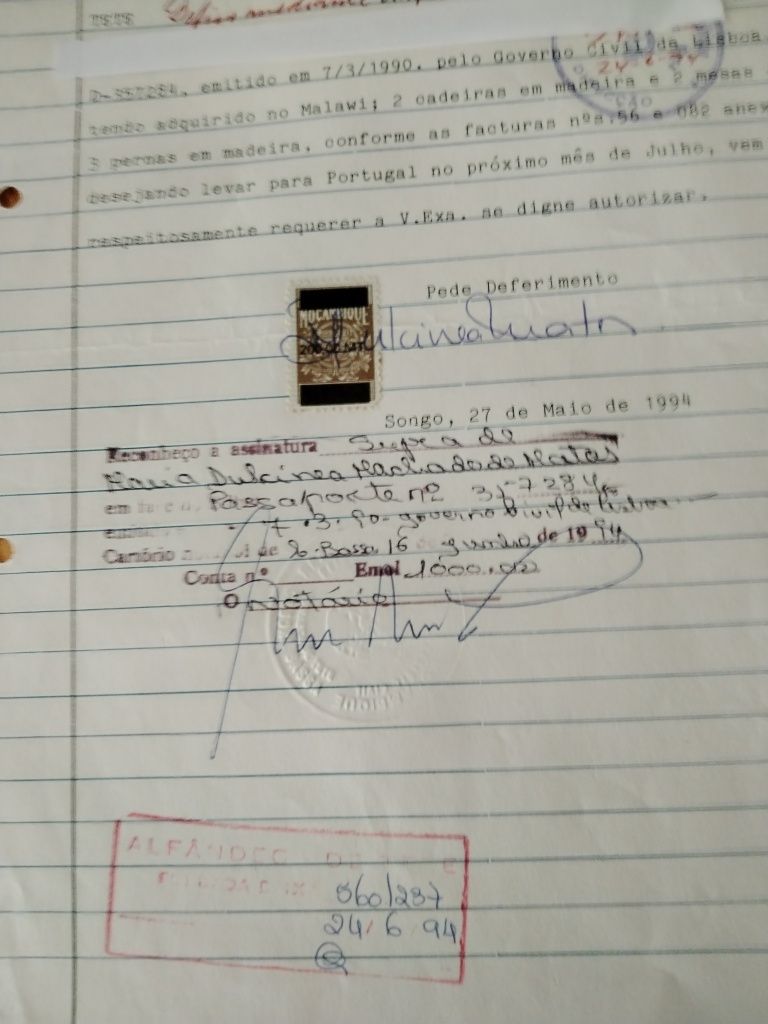 D-357284, emitido em 7/3/1990, pelo Governo Civil de Lisboa
tendo adquirido no Malawi; 2 cadeiras em madeira e 2 mesas
3 pernas em madeira, conforme as facturas nºs.56 e 082 anex
desejando levar para Portugal no próximo mês de Julho, vem
respeitosamente requerer a V.Exa. se digne autorizar.
24-6-94
Pede Deferimento
MOÇAMBIQUE
200,00 MT
Dulcinea Matos
Songo, 27 de Maio de 1994
Reconheço a assinatura Supra de
Maria Dulcinea Machado de Matos
em Passaporte nº
7.3.90 governo Civil de Lisboa
Cartório de C. Bassa 16 de Junho de 1994
Conta nº Emol 1000,00
O notário
ALFANDEG
860/237
24/6/94